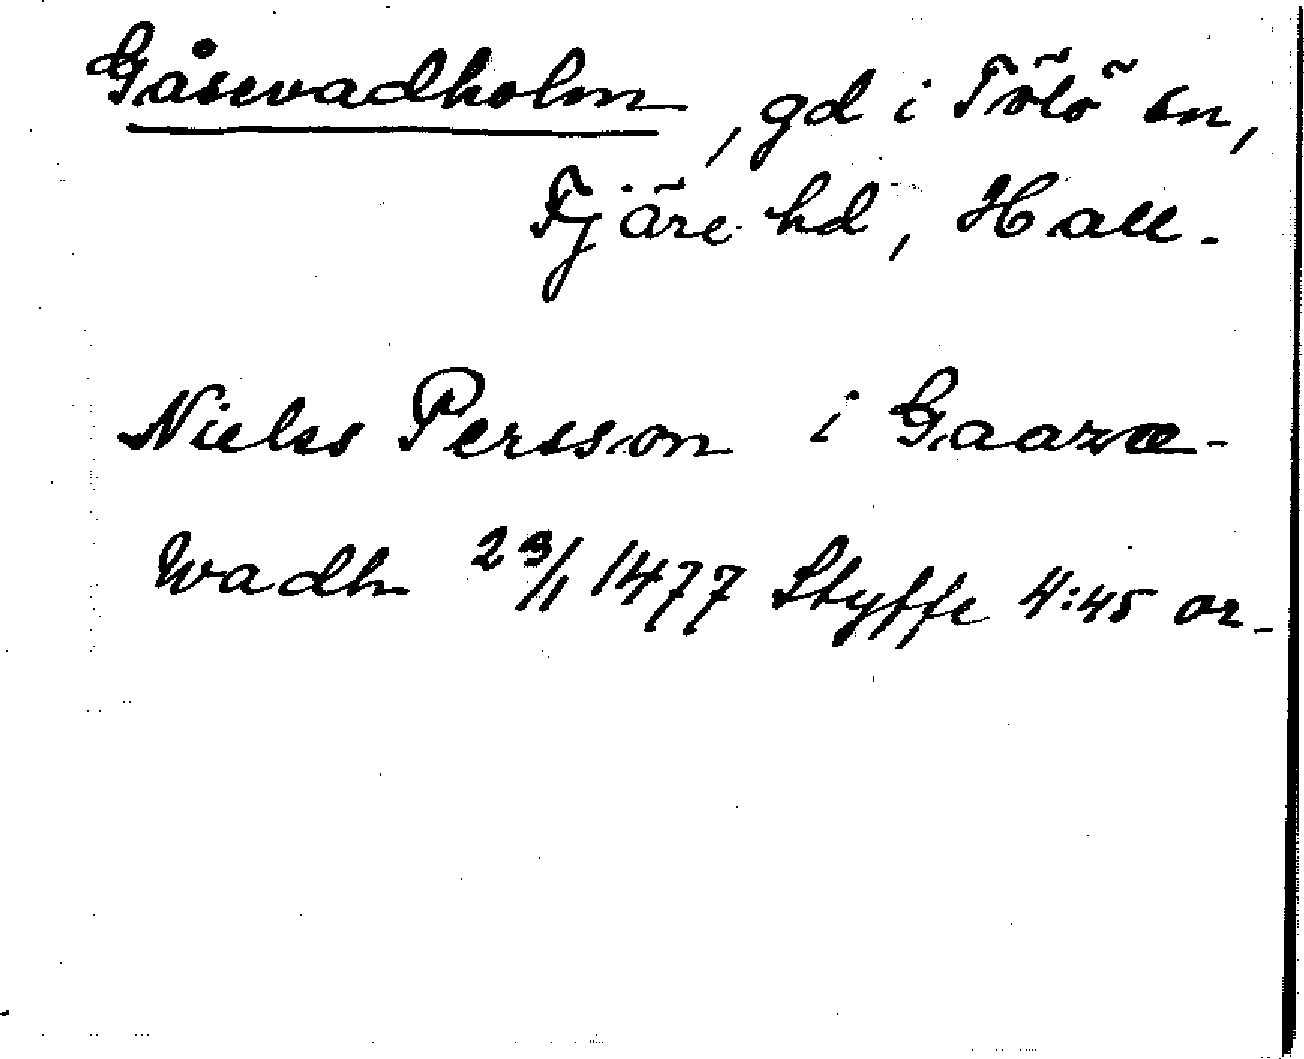 Gåsevadholm, gd i Tölö sn,
Fjäre hd, Hall.
Nieles Persson i Gaazæ-
wadh 23/1 1477 Styffe 4:45 or.